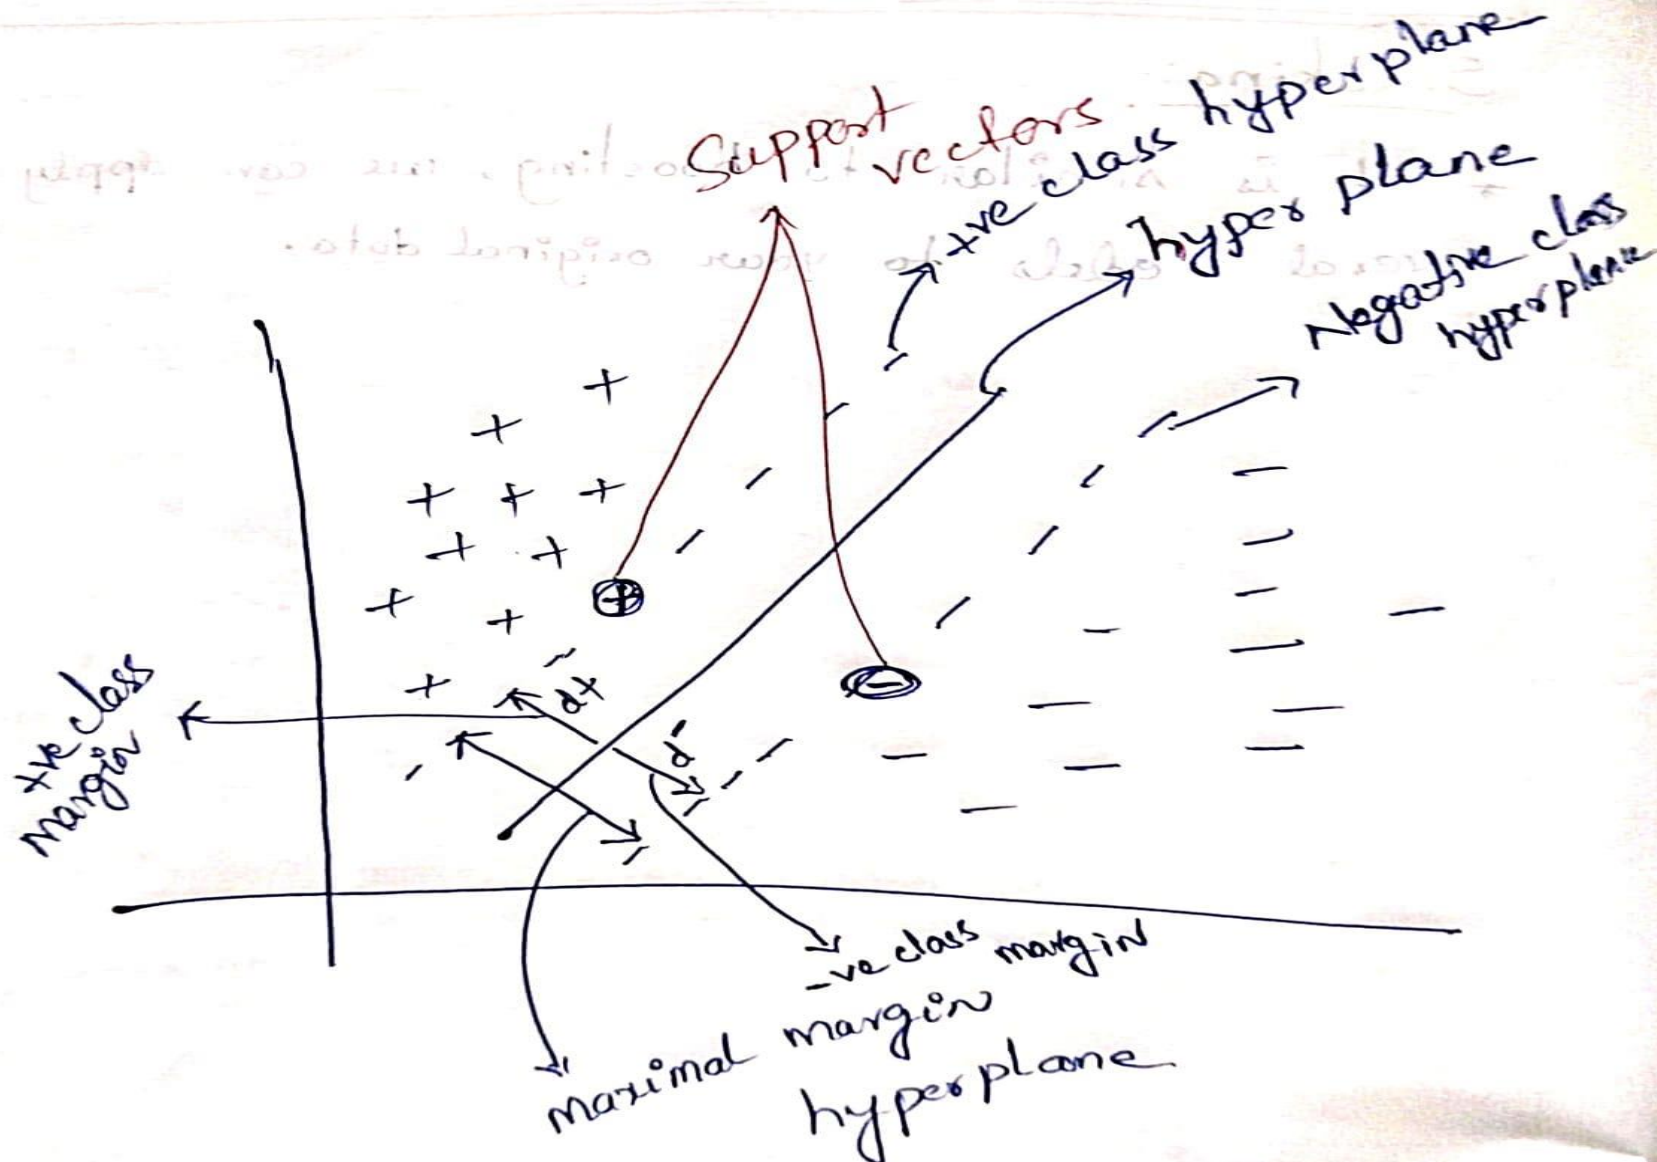 Support
vectors
+ve class hyperplane
hyper plane
Negative class
hyperplane
d+
d-
+ve class
margin
-ve class margin
maximal margin
hyperplane